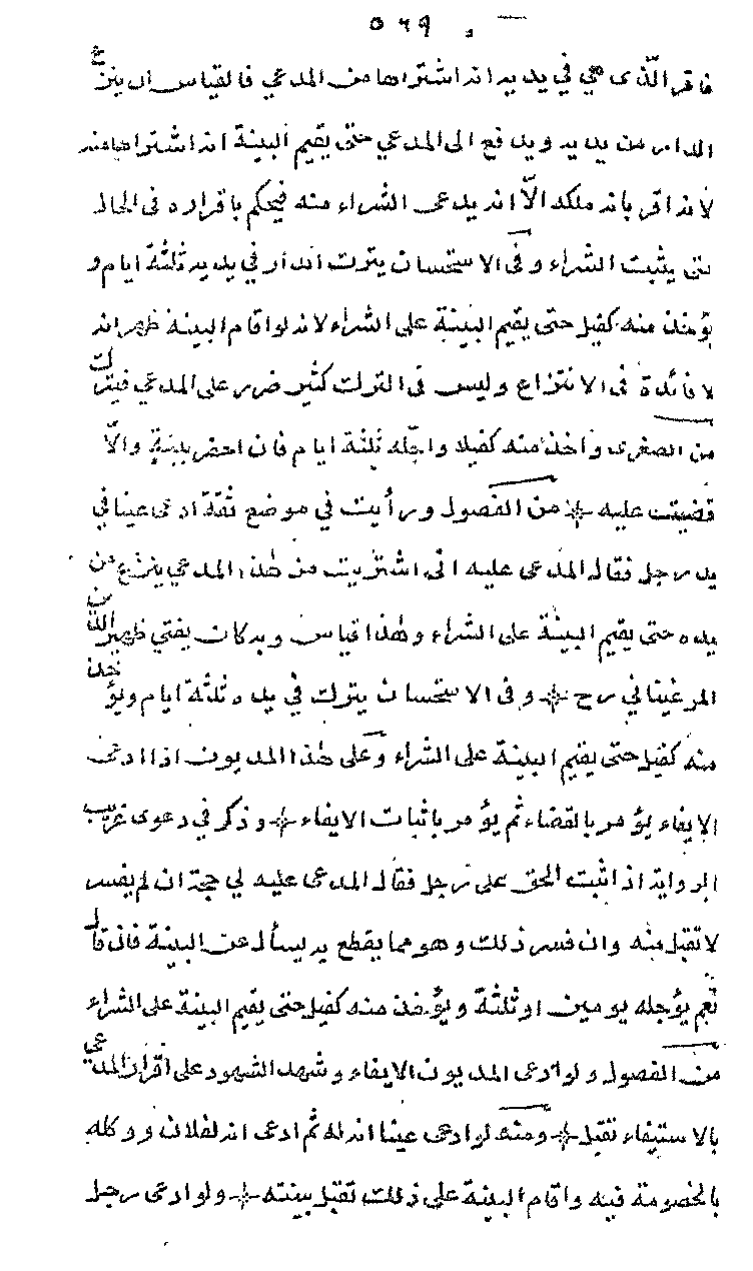 ٥٦٩
فاقر الّذى هي في يديه انه اشتراها من المدعي فالقياس ان ينزع
الدار من يديه ويدفع الى المدعي حتى يقيم البينة انه اشتراها منه
لانه اقر بانه ملكه الّا انه يدعى الشراء منه فيحكم باقراره فى الحال
حتى يثبت الشراء وفى الاستحسان يترك الدار في يديه ثلثة ايام و
يؤخذ منه كفيل حتى يقيم البينة على الشراء لانه لو اقام البينة ظهر انه
لا فائدة فى الانتزاع وليس فى الترك كثير ضرر على المدعي فيترك
من الصغرى واخذ منه كفيلا واجّله ثلثة ايام فان احضر بينةٍ والّا
قضيت عليه من الفصول ورأيت في موضع ثقة ادعى عينا في
يد رجل فقال المدعى عليه انى اشتريت من هذا المدعي ينزع من
يده حتى يقيم البينة على الشراء وهذا قياس وبه كان يفتي ظهير الدين
المرغيناني رح وفى الاستحسان يترك في يده ثلثة ايام ويؤخذ
منه كفيل حتى يقيم البينة على الشراء وعلى هذا المديون اذا ادعى
الايفاء يؤمر بالقضاء ثم يؤمر باثبات الايفاء وذكر في دعوى غريب
الرواية اذ اثبت الحق على رجل فقال المدعى عليه لي حجة ان لم يفسر
لا تقبل منه وان فسر ذلك وهو مما يقطع به يسأل عن البينة فان قال
نعم يؤجله يومين او ثلثة ويؤخذ منه كفيل حتى يقيم البينة على الشراء
من الفصول ولو ادعى المديون الايفاء وشهد الشهود على اقرار المدعي
بالاستيفاء تقبل ومنه لو ادعى عينا انه له ثم ادعى انه لفلان ووكله
بالخصومة فيه واقام البينة على ذلك تقبل بينته ولو ادعى رجل